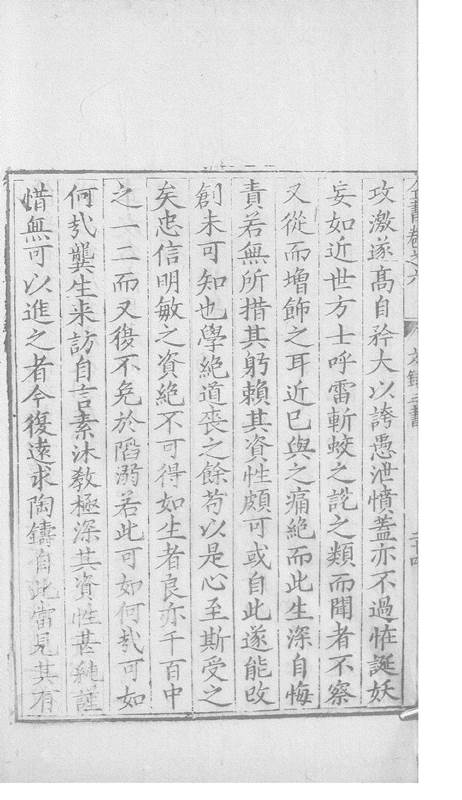 攻激遂髙自矜大以誇愚泄憤蓋亦不過恠誕妖
妄如近世方士呼雷斬蛟之說之類而聞者不察
又從而増飾之耳近巳與之痛絶而此生深自悔
責若無所措其躬賴其資性頗可或自此遂能改
創未可知也學絶道喪之餘苟以是心至斯受之
矣忠信明敏之資絶不可得如生者良亦千百中
之一二而又復不免於陷溺若此可如何㢤可如
何㢤龔生来訪自言素沐教極深其資性甚純謹
惜無可以進之者今復遠求陶鑄自此當見其有